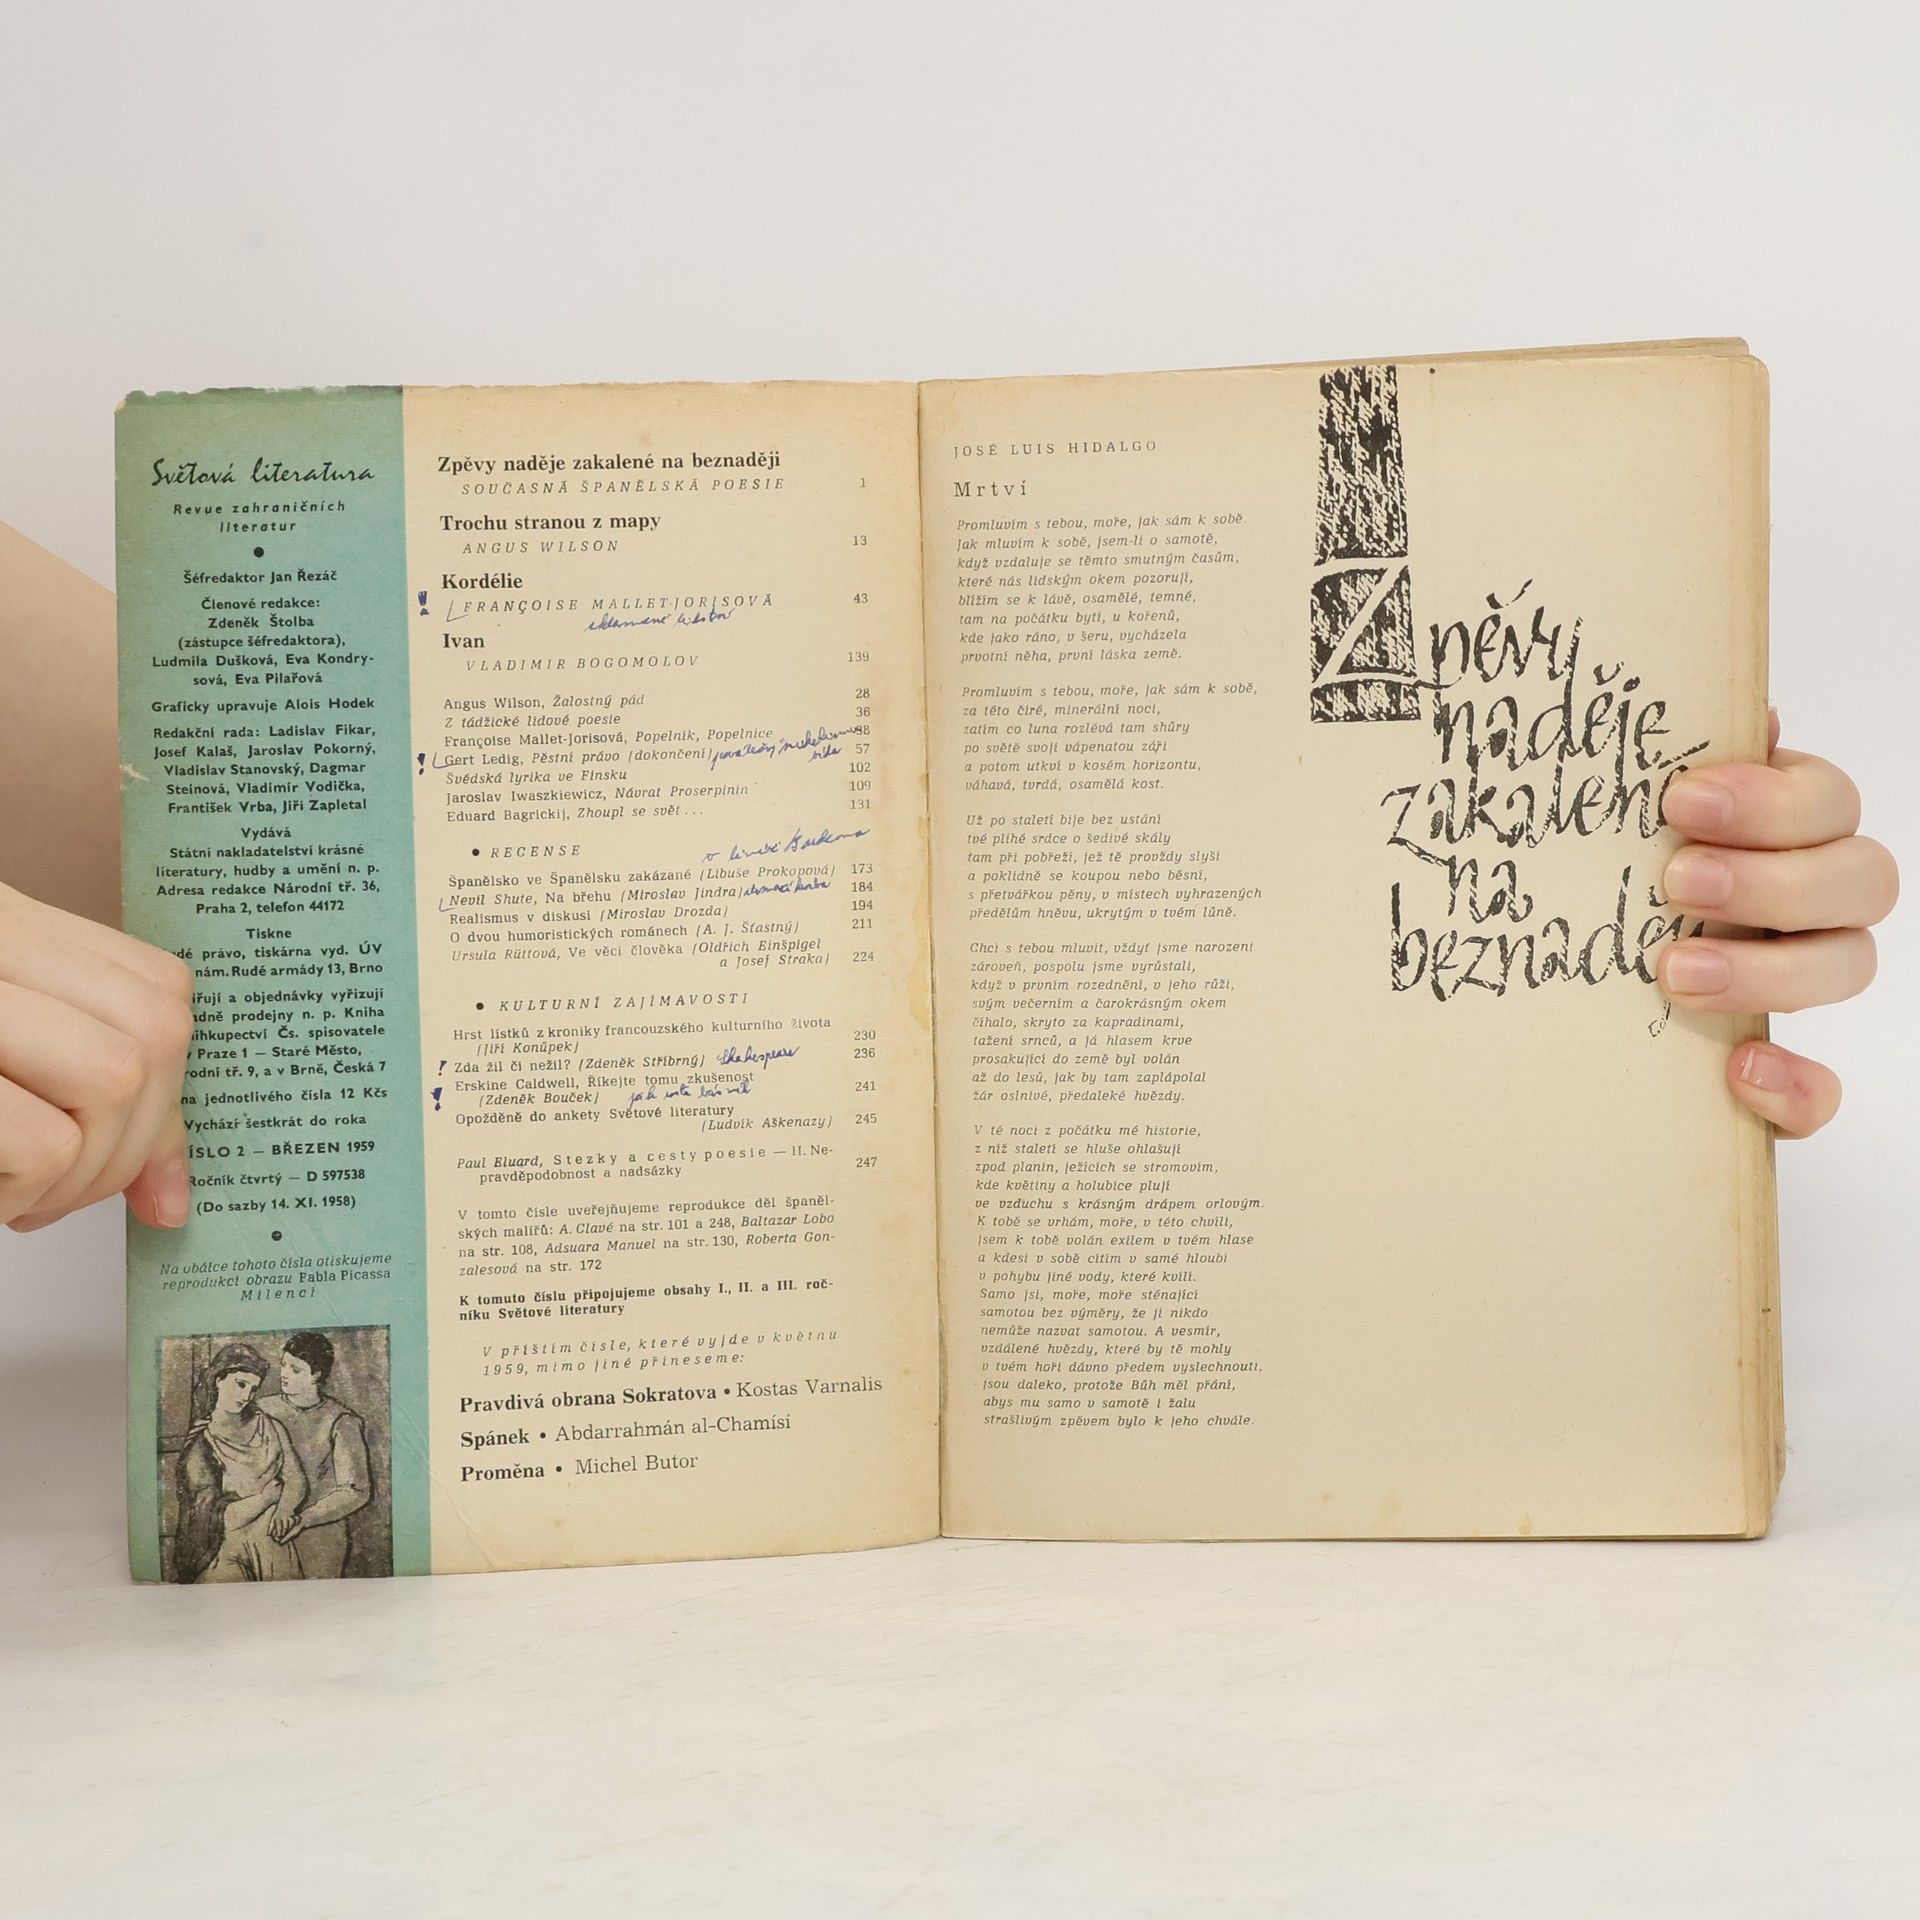 Světová literatura
Revue zahraničních
literatur
Šéfredaktor Jan Řezáč
Členové redakce:
Zdeněk Štolba
(zástupce šéfredaktora),
Ludmila Dušková, Eva Kondry-
sová, Eva Pilařová
Graficky upravuje Alois Hodek
Redakční rada: Ladislav Fikar,
Josef Kalaš, Jaroslav Pokorný,
Vladislav Stanovský, Dagmar
Steinová, Vladimír Vodička,
František Vrba, Jiří Zapletal
Vydává
Státní nakladatelství krásné
literatury, hudby a umění n. p.
Adresa redakce Národní tř. 36,
Praha 2, telefon 44172
Tiskne
právo, tiskárna vyd. ÚV
nám. Rudé armády 13, Brno
a objednávky vyřizují
prodejny n. p. Kniha
Čs. spisovatele
v Praze 1 — Staré Město,
tř. 9, a v Brně, Česká 7
jednotlivého čísla 12 Kčs
Vychází šestkrát do roka
ÍSLO 2 — BŘEZEN 1959
Ročník čtvrtý — D 597538
(Do sazby 14. XI. 1958)
Na obálce tohoto čísla otiskujeme
reprodukci obrazu Pabla Picassa
Milenci
Zpěvy naděje zakalené na beznaději
SOUČASNÁ ŠPANĚLSKÁ POESIE 1
Trochu stranou z mapy
ANGUS WILSON 13
Kordélie
! FRANÇOISE MALLET-JORISOVÁ 43
Ivan
VLADIMIR BOGOMOLOV 139
Angus Wilson, Žalostný pád 28
Z tádžické lidové poesie 36
Françoise Mallet-Jorisová, Popelník, Popelnice 38
! Gert Ledig, Pěstní právo (dokončení) 57
Švédská lyrika ve Finsku 102
Jaroslav Iwaszkiewicz, Návrat Proserpinin 109
Eduard Bagrickij, Zhoupl se svět... 131
• RECENSE
Španělsko ve Španělsku zakázané (Libuše Prokopová) 173
Nevil Shute, Na břehu (Miroslav Jindra) 184
Realismus v diskusi (Miroslav Drozda) 194
O dvou humoristických románech (A. J. Šťastný) 211
Ursula Rüttová, Ve věci člověka (Oldřich Einšpigel
a Josef Straka) 224
• KULTURNÍ ZAJÍMAVOSTI
Hrst lístků z kroniky francouzského kulturního života
(Jiří Konůpek) 230
! Zda žil či nežil? (Zdeněk Stříbrný) Shakespeare 236
Erskine Caldwell, Říkejte tomu zkušenost
! (Zdeněk Bouček) 241
Opožděně do ankety Světové literatury
(Ludvík Aškenazy) 245
Paul Eluard, Stezky a cesty poesie — II. Ne-
pravděpodobnost a nadsázky 247
V tomto čísle uveřejňujeme reprodukce děl španěl-
ských malířů: A. Clavé na str. 101 a 248, Baltazar Lobo
na str. 108, Adsuara Manuel na str. 130, Roberta Gon-
zalesová na str. 172
K tomuto číslu připojujeme obsahy I., II. a III. roč-
níku Světové literatury
V příštím čísle, které vyjde v květnu
1959, mimo jiné přineseme:
Pravdivá obrana Sokratova • Kostas Varnalis
Spánek • Abdarrahmán al-Chamísí
Proměna • Michel Butor
JOSÉ LUIS HIDALGO
Mrtví
Promluvím s tebou, moře, jak sám k sobě.
Jak mluvím k sobě, jsem-li o samotě,
když vzdaluje se těmto smutným časům,
které nás lidským okem pozorují,
blížím se k lávě, osamělé, temné,
tam na počátku bytí, u kořenů,
kde jako ráno, v šeru, vycházela
prvotní něha, první láska země.
Promluvím s tebou, moře, jak sám k sobě,
za této čiré, minerální noci,
zatím co luna rozlévá tam shůry
po světě svoji vápenatou záři
a potom utkví v kosém horizontu,
váhavá, tvrdá, osamělá kost.
Už po staletí bije bez ustání
tvé plihé srdce o šedivé skály
tam při pobřeží, jež tě provždy slyší
a poklidně se koupou nebo běsní,
s přetvářkou pěny, v místech vyhrazených
předělům hněvu, ukrytým v tvém lůně.
Chci s tebou mluvit, vždyť jsme narozeni
zároveň, pospolu jsme vyrůstali,
když v prvním rozednění, v jeho růži,
svým večerním a čarokrásným okem
číhalo, skryto za kapradinami,
tažení srnců, a já hlasem krve
prosakující do země byl volán
až do lesů, jak by tam zaplápolal
žár oslnivé, předaleké hvězdy.
V té noci z počátku mé historie,
z níž staletí se hluše ohlašují
zpod planin, ježících se stromovím,
kde květiny a holubice plují
ve vzduchu s krásným drápem orlovým.
K tobě se vrhám, moře, v této chvíli,
jsem k tobě volán exilem v tvém hlase
a kdesi v sobě cítím v samé hloubi
v pohybu jiné vody, které kvílí.
Samo jsi, moře, moře sténající
samotou bez výměry, že ji nikdo
nemůže nazvat samotou. A vesmír,
vzdálené hvězdy, které by tě mohly
v tvém hoři dávno předem vyslechnouti,
jsou daleko, protože Bůh měl přání,
abys mu samo v samotě i žalu
strašlivým zpěvem bylo k jeho chvále.
Zpěvy
naděje
zakalené
na
beznaděj